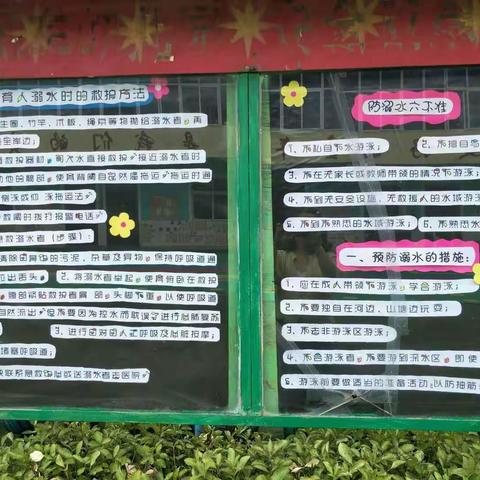 育人溺水时的救护方法
生圈、竹竿、木板、绳索等物抛给溺水者，再
至岸边；
救护器材，可入水直接救护，接近溺水者时
他的髋部，使背背向自己然后拖运，拖运时通
侧泳或仰泳拖运法
拨打报警电话
急救溺水者（步骤）：
清除口鼻里的污泥、杂草及异物，保持呼吸道通
拉出舌头
2、将溺水者举起，使背俯卧在救护
腹部紧贴救护者肩部，头脚下垂，以使呼吸道
自然流出，但不要因为控水而耽误了进行心肺复苏
3、进行口对口人工呼吸及心脏按摩；
堵塞呼吸道；
快联系急救中心或送溺水者去医院
防溺水六不准
1、不私自下水游泳；
2、不擅自
3、不在无家长或教师带领的情况下游泳；
4、不到无安全设施、无救援人的水域游泳；
5、不到不熟悉的水域游泳；
6、不熟悉水
一、预防溺水的措施：
1、应在成人带领下游泳，学会游泳；
2、不要独自在河边、山塘边玩耍；
3、不去非游泳区游泳；
4、不会游泳者，不要游到深水区，即使
5、游泳前要做适当的准备活动，以防抽筋